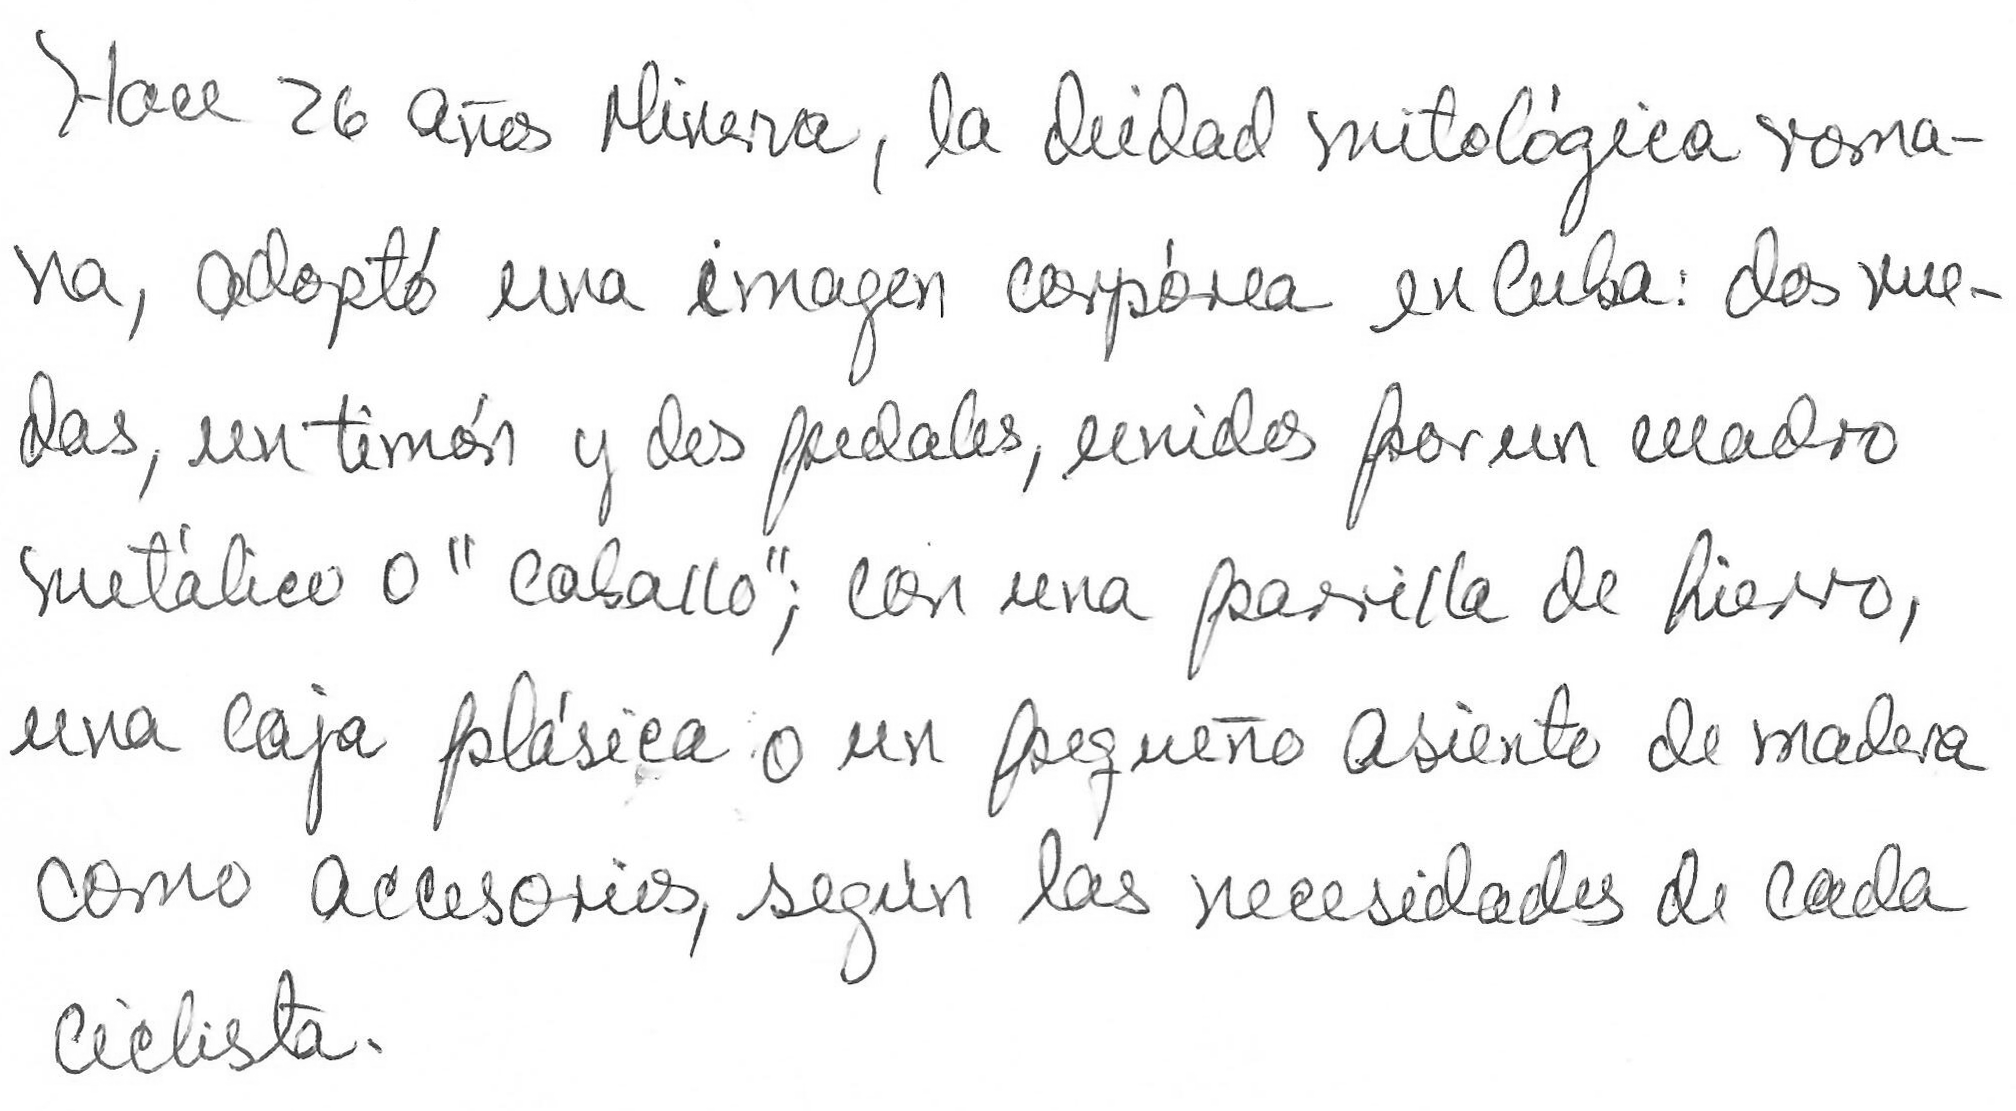 Hace 26 años Minerva, la deidad mitológica roma-
na, adoptó una imagen corpórea en Cuba: dos rue-
das, un timón y dos pedales, unidos por un cuadro
metálico o "caballo"; con una parrilla de hierro,
una caja plásica o un pequeño asiento de madera
como accesorios, según las necesidades de cada
ciclista.